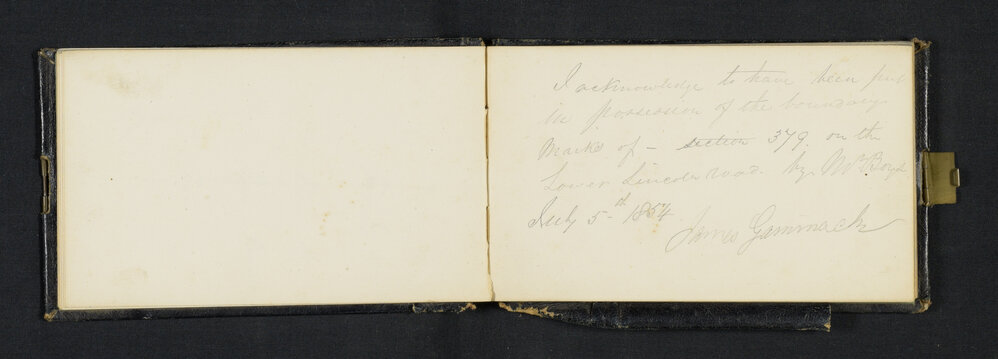 I acknowledge to have been put
in possession of the boundary
marks of - section 379. on the
Lower Lincoln road. by Mr Boyd
July 5-th 1854
James Gammack